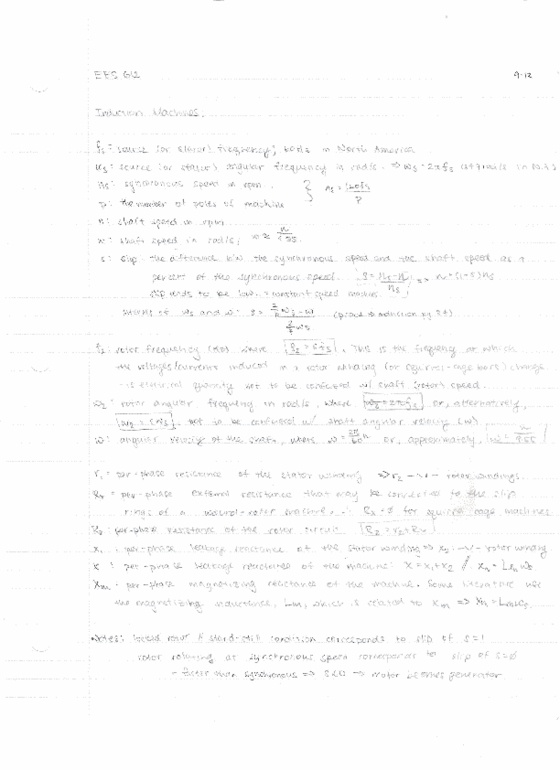 EES 612 9-12
Induction Machines:
f₁: source (or stator) frequency; 60Hz in North America
ωs: source (or stator) angular frequency in rad/s. ⇒ ωs = 2πfs (377 rad/s in
ns: synchronous speed in rpm. } ns = 120fs / P
p: the number of poles of machine
n: shaft speed in rpm
w: shaft speed in rad/s; w ≈ n / 9.55
s: slip - the difference b/w the synchronous speed and the shaft speed as a
percent of the synchronous speed. s = ns-n / ns ⇒ n = (1-s)ns
slip tends to be low. ∴ constant speed machine
terms of ωs and w: s = 2/p ωs - w / 2/p ωs
f₂: rotor frequency (Hz) where f₂ = sfs. This is the frequency at which
the voltages/currents induced in a rotor winding (or squirrel-cage bars) change
- is electrical quantity not to be confused w/ shaft (rotor) speed.
ω₂: rotor angular frequency in rad/s, where ω₂ = 2πf₂ or, alternatively,
not to be confused w/ shaft angular velocity (w)
w: angular velocity of the shaft, where w = 2π/60 n or, approximately, w = n / 9.55
r₁: per-phase resistance of the stator winding ⇒ r₂ -"- rotor windings.
Rx: per-phase external resistance that may be connected to the slip
rings of a wound-rotor machine, ∴ Rx = 0 for squirrel cage machines
R₂: per-phase resistance of the rotor circuit R₂ = r₂ + Rx
x₁: per-phase leakage reactance of the stator winding ⇒ x₂ -"- rotor winding
X: per-phase leakage reactance of the machine. X = x₁ + x₂
Xm: per-phase magnetizing reactance of the machine. Some literature use
the magnetizing inductance, Lm, which is related to Xm ⇒ Xm = Lmωs.
• Notes: locked rotor & stand-still condition corresponds to slip of s=1
rotor rotating at synchronous speed corresponds to slip of s=0
- faster than synchronous ⇒ s<0 → motor becomes generator